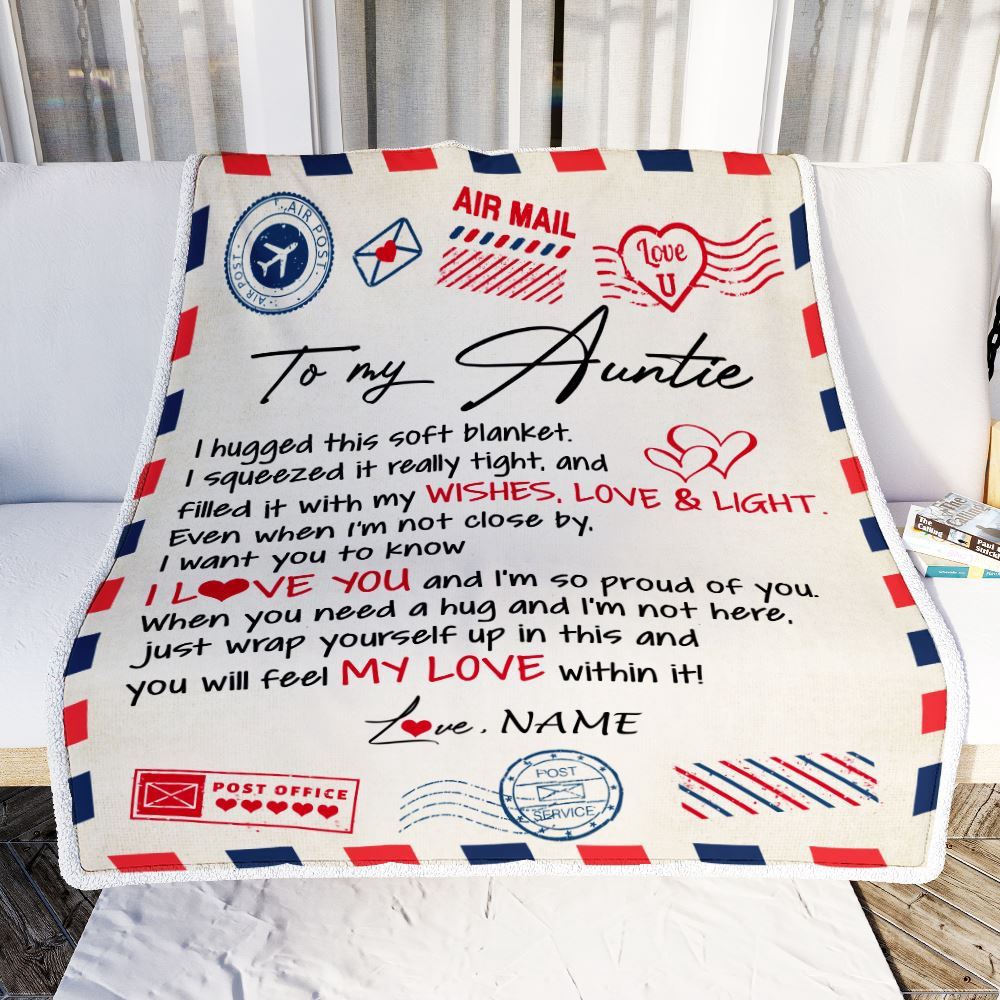 AIR POST
AIR POST
AIR MAIL
Love
U
To my Auntie
I hugged this soft blanket.
I squeezed it really tight, and
filled it with my WISHES, LOVE & LIGHT.
Even when I'm not close by,
I want you to know
I LVE YOU and I'm so proud of you.
When you need a hug and I'm not here,
just wrap yourself up in this and
you will feel MY LOVE within it!
Love, NAME
POST OFFICE
POST
SERVICE
The
Calling
Paul